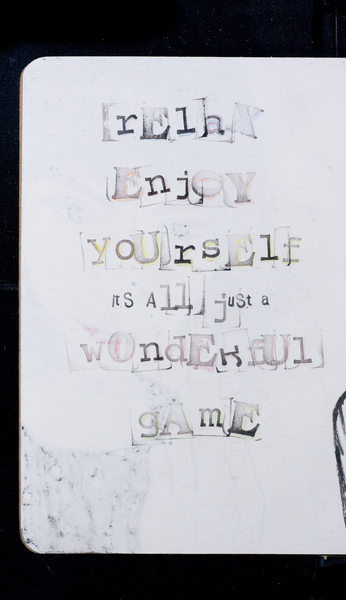 rElaX
EnjOY
yoUrsElf
itS All juSt a
wOndErfUl
gAmE